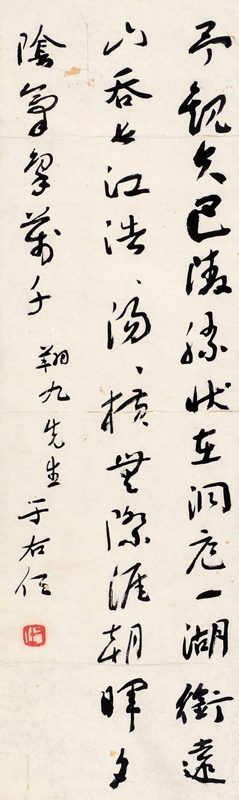 予觀夫巴陵勝狀在洞庭一湖銜遠
山吞長江浩、湯、橫無際涯朝暉夕
陰氣象萬千 翔九先生 于右任